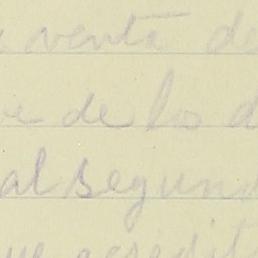 venta de
e de los d
al segun
que acredit